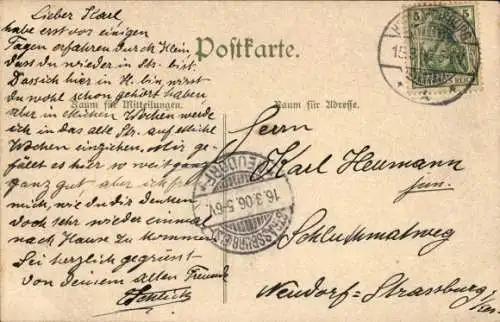 Postkarte.
Raum für Mitteilungen.
Raum für Adresse.
Lieber Karl,
habe erst vor einigen
Tagen erfahren durch Klein
dass du wieder in Str. bist.
Dass ich hier in H. bin, wirst
du wohl schon gehört haben,
aber in etlichen Wochen werde
ich in das alte Str. auf etliche
Wochen einziehen, Mir ge-
fällt es hier so weit ganz
ganz gut aber ich
mich, wie du dir denken
doch sehr wieder einmal
nach Hause zu kommen
Sei herzlich gegrüsst
von deinem alten Freund
Herrn
Karl Heumann
jun.
Schluthmatweg
Neudorf=Strassburg
5
NEUDORF
16.3.06. 5-6V.
STRASSBURG